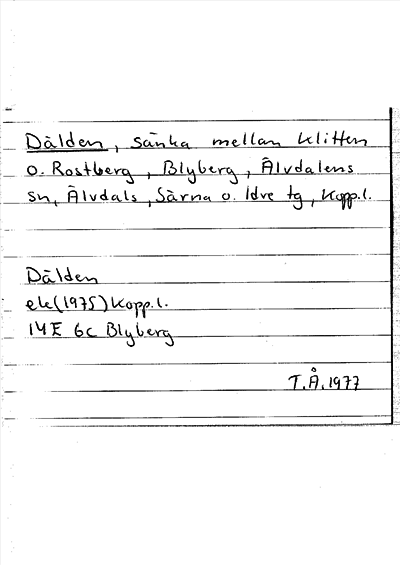 Dälden, sänka mellan Klitten
o. Rostberg, Blyberg, Älvdalens
sn, Älvdals, Särna o. Idre tg, Kopp.l.
Dälden
ek(1975) Kopp.l.
14E 6c Blyberg
T.Å.1977